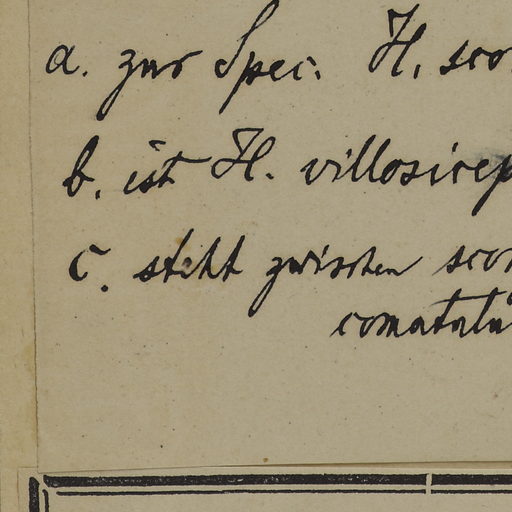 a. zur Spec. H. sco
b. ist H. villosicep
c. steht zwischen scor
comatulu